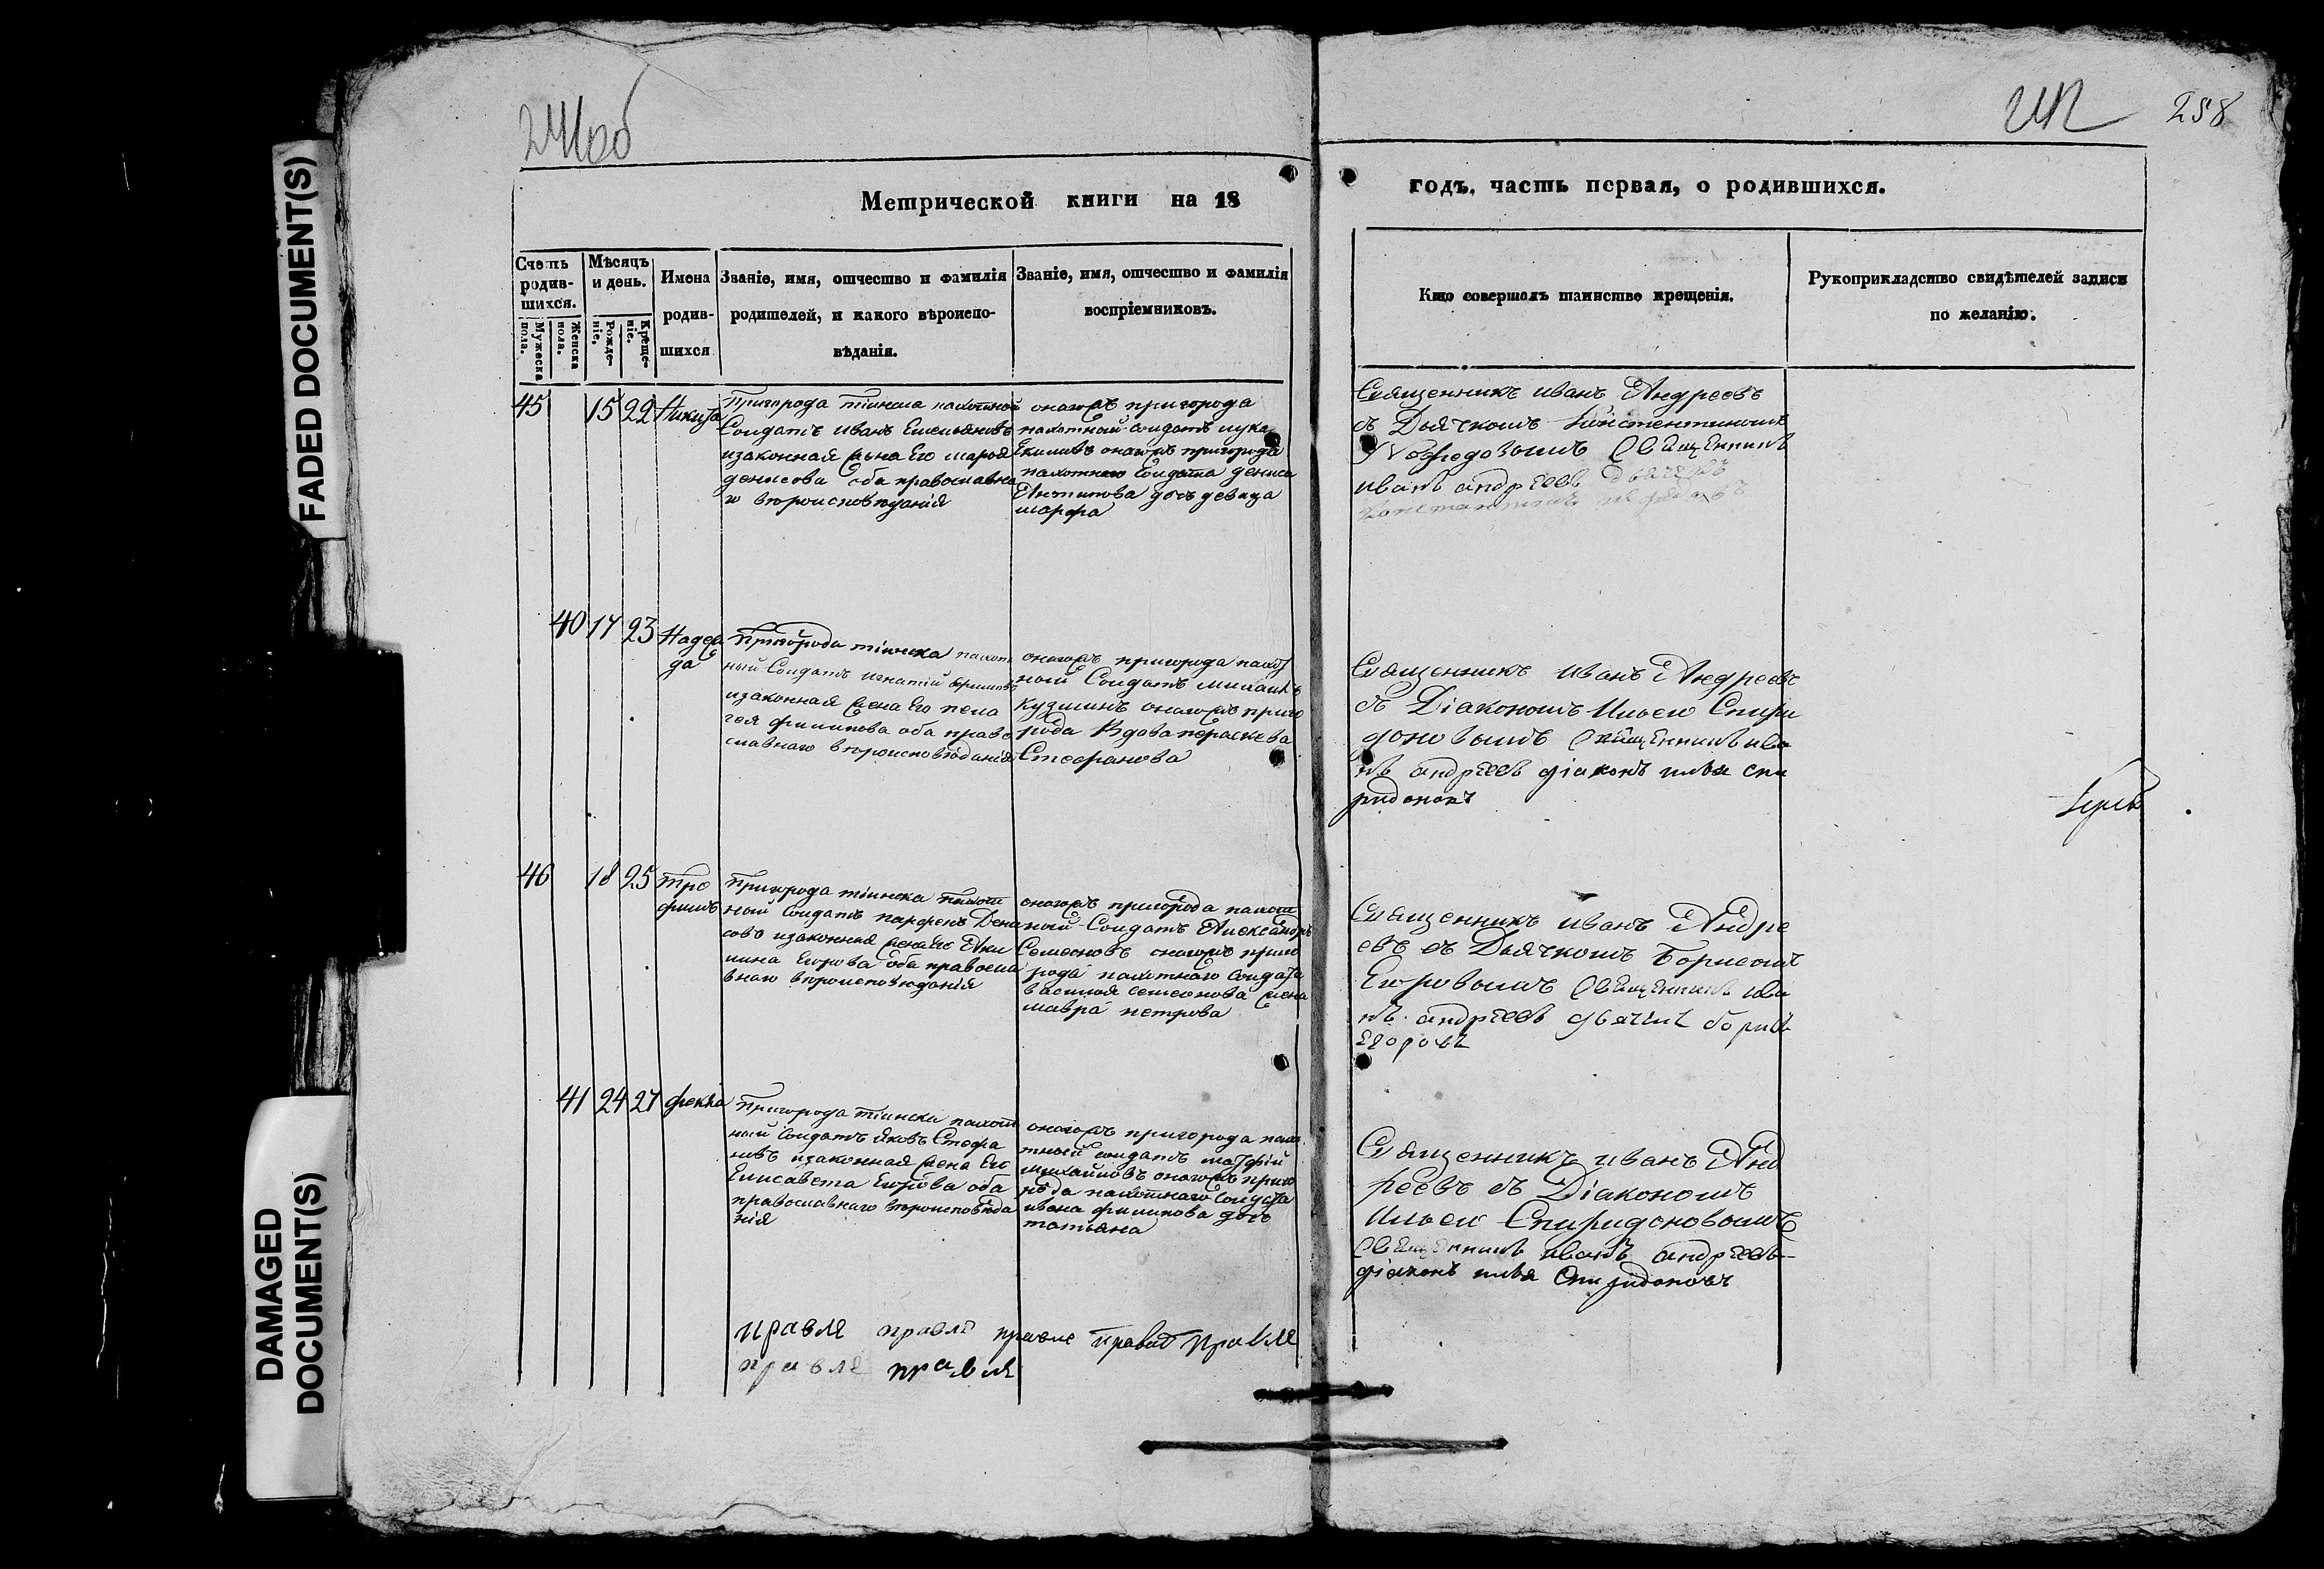 FADED DOCUMENT(S)
DAMAGED
DOCUMENT(S)
258
Метрической книги на 18
годъ, часть первая, о родившихся.
Счетъ
родив-
шихся.
Мужеска
пола.
Женска
пола.
Мѣсяцъ
и день.
Рожде-
ніе.
Креще-
ніе.
Имена
родив-
шихся
Званіе, имя, отчество и фамилія
родителей, и какого вѣроиспо-
вѣданія.
Званіе, имя, отчество и фамилія
воспріемниковъ.
Кто совершалъ таинство крещенія.
Рукоприкладство свидѣтелей записи
по желанію.
45 15 22 Никита
Пригорода тіинска пахотной
Солдатъ иванъ Емельяновъ
изаконная жена Его марья
денисова оба православна
го вѣроисповѣданія
оногожъ пригорода
пахотный солдатъ лука
Екимовъ оногожъ пригорода
пахотнаго Солдата дениса
Антипова дочь девица
марфа
Священникъ иванъ Андреевъ
съ Дьячкомъ Констентиномъ
Священникъ
иванъ андреевъ дьячекъ
40 17 23 Надеж
да
Пригорода тіинска пахот
ный Солдатъ игнатій
изаконная жена Его пела
гея филипова оба право
славнаго вѣроисповѣданія
оногожъ пригорода пахот
ный Солдатъ михаилъ
Кузминъ оногожъ приго
рода Вдова параскева
Стефанова
Священникъ иванъ Андреевъ
съ Діакономъ Ильею Спири
доновымъ Священникъ ива
нъ андреевъ діаконъ илья спи
ридоновъ
46 18 25 Тро
фимъ
Пригорода тіинска пахот
ный Солдатъ парфенъ Дени
совъ изаконная жена Его Аку
лина Егорова оба правосла
внаго вѣроисповѣданія
оногожъ пригорода пахот
ный Солдатъ Александръ
Семеоновъ оногожъ приго
рода пахотнаго Солдата
василія семеонова жена
мавра петрова
Священникъ иванъ Андре
евъ съ Дьячкомъ Борисомъ
Егоровымъ Священникъ ива
нъ андреевъ дьячекъ борисъ
Егоровъ
41 24 27 фекла
Пригорода тіинска пахот
ный солдатъ яковъ Стефа
новъ изаконная жена Его
Елисавета Егорова оба
православнаго вѣроисповѣда
нія
оногожъ пригорода пахо
тный солдатъ матфій
михайловъ оногожъ приго
рода пахотнаго Солдата
ивана филипова дочь
татьяна
Священникъ иванъ Анд
реевъ съ Діакономъ
Ильею Спиридоновымъ
Священникъ иванъ андреевъ
діаконъ илья Спиридоновъ